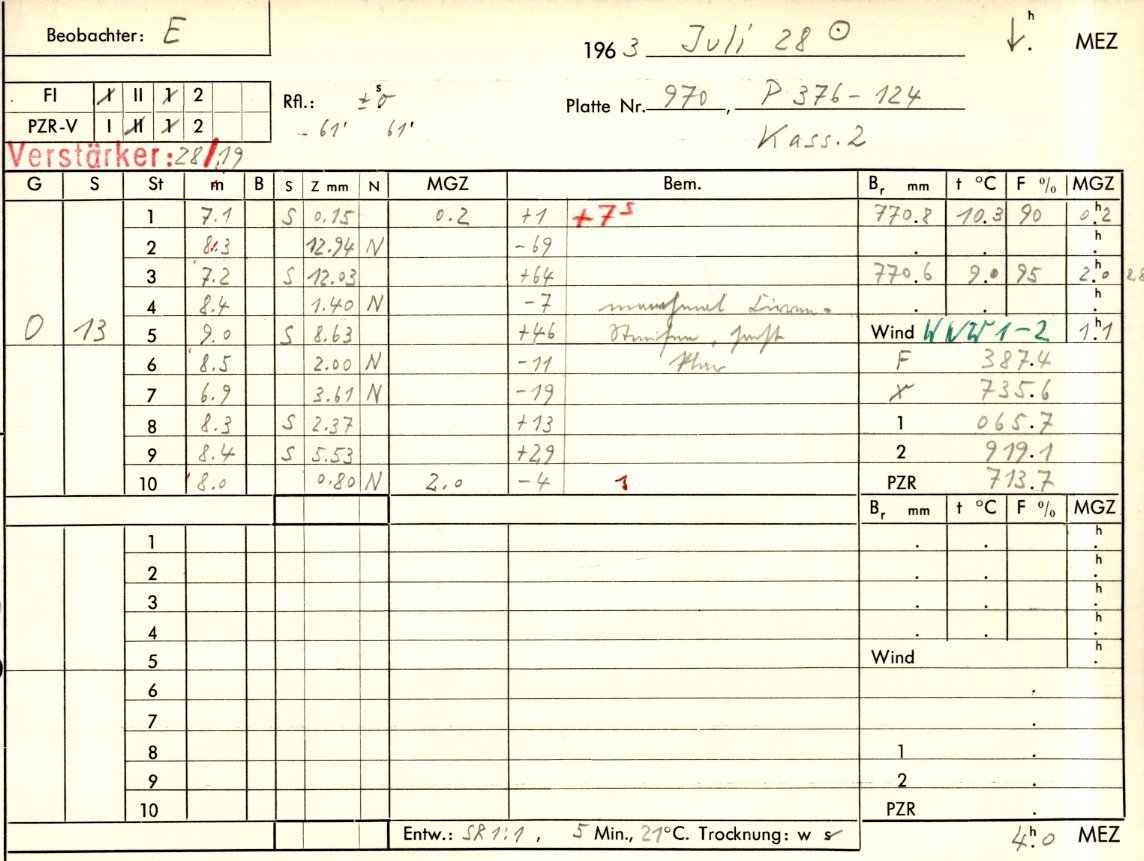 Beobachter: E
1963 Juli 28 ⊙ ↓ h. MEZ
FI I II 1 2
PZR-V I II 1 2
Rfl.: ±0s
-61' 61'
Platte Nr. 970, P 376-124
Kass. 2
Verstärker: 28/19
G S St m B S Z mm N MGZ Bem. Br mm t °C F % MGZ
1 7.1 S 0.15 0.2 +1 +7s 770.8 10.3 90 0h.2
2 8.3 12.94 N -69 . . h.
3 7.2 S 12.03 +64 770.6 9.0 95 2h.0
4 8.4 1.40 N -7 manchmal . . h.
0 13 5 9.0 S 8.63 +46 Streifen, sonst Wind WNW 1-2 1h.1
6 8.5 2.00 N -11 klar F 387.4
7 6.9 3.61 N -19 735.6
8 8.3 S 2.37 +13 1 065.7
9 8.4 S 5.53 +29 2 919.1
10 8.0 0.80 N 2.0 -4 1 PZR 713.7
Br mm t °C F % MGZ
1 . . h.
2 . . h.
3 . . h.
4 . . h.
5 Wind h.
6 .
7 .
8 1 .
9 2 .
10 PZR .
Entw.: SR 1:1, 5 Min., 21°C. Trocknung: w s 4h.0 MEZ